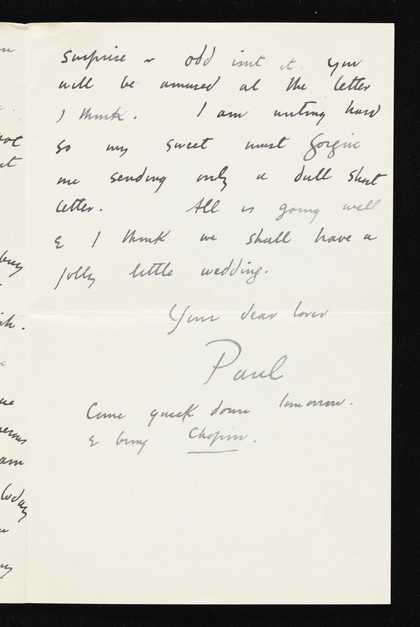 surprise & odd isnt it. You
will be amused at the letter
I think. I am writing hard
so my sweet must forgive
me sending only a dull short
letter. All is going well
& I think we shall have a
jolly little wedding.
Your dear lover
Paul
Come quick down tomorrow.
& bring Chopin.